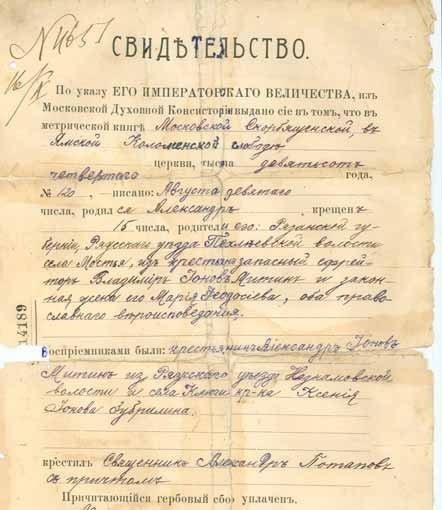 № 1651
16/X
СВИДѢТЕЛЬСТВО.
По указу ЕГО ИМПЕРАТОРСКАГО ВЕЛИЧЕСТВА, изъ
Московской Духовной Консисторіи выдано сіе въ томъ, что въ
метрической книгѣ Московской Скорбященской, въ
Ямской Коломенской слободѣ
церкви, тысяча девятьсотъ
четвертаго года,
№ 120, писано: Августа девятаго
числа, родился Александръ, крещенъ
15 числа, родители его: Рязанской гу-
берніи, Ряжскаго уѣзда волости
села Мостья, изъ крестьянъ запасный ефрей-
торъ Владиміръ Іоновъ Митинъ и закон-
ная жена его Марія Ѳеодосіева, оба право-
славнаго вѣроисповѣданія.
14189
Воспріемниками были: крестьянинъ Александръ Іоновъ
Митинъ изъ Ряжскаго уѣзда Незнамовской
волости и села Ключи кр-ка Ксенія
Іонова
крестилъ Священникъ Александръ Потаповъ
съ причтомъ
Причитающійся гербовый сборъ уплаченъ.